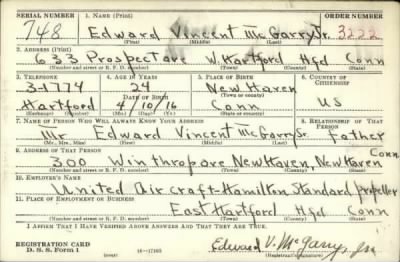 SERIAL NUMBER 1. NAME (Print) ORDER NUMBER
748 Edward Vincent McGarry Jr. 3222
(First) (Middle) (Last)
2. ADDRESS (Print)
633 Prospect ave W. Hartford Hfd Conn
(Number and street or R. F. D. number) (Town) (County) (State)
3. TELEPHONE 4. AGE IN YEARS 5. PLACE OF BIRTH 6. COUNTRY OF CITIZENSHIP
3-1774 24 New Haven
DATE OF BIRTH (Town or county)
Hartford 4/10/16 Conn US
(Exchange) (Number) (Mo.) (Day) (Yr.) (State or country)
7. NAME OF PERSON WHO WILL ALWAYS KNOW YOUR ADDRESS 8. RELATIONSHIP OF THAT PERSON
Mr Edward Vincent McGarry Sr. Father
(Mr., Mrs., Miss) (First) (Middle) (Last)
9. ADDRESS OF THAT PERSON Conn
300 Winthrop ave New Haven, New Haven
(Number and street or R. F. D. number) (Town) (County) (State)
10. EMPLOYER'S NAME
United Aircraft-Hamilton Standard Propeller
11. PLACE OF EMPLOYMENT OR BUSINESS
East Hartford Hfd Conn
(Number and street or R. F. D. number) (Town) (County) (State)
I AFFIRM THAT I HAVE VERIFIED ABOVE ANSWERS AND THAT THEY ARE TRUE.
REGISTRATION CARD
D. S. S. Form 1 (over) 16-17105 Edward V. McGarry, Jr.